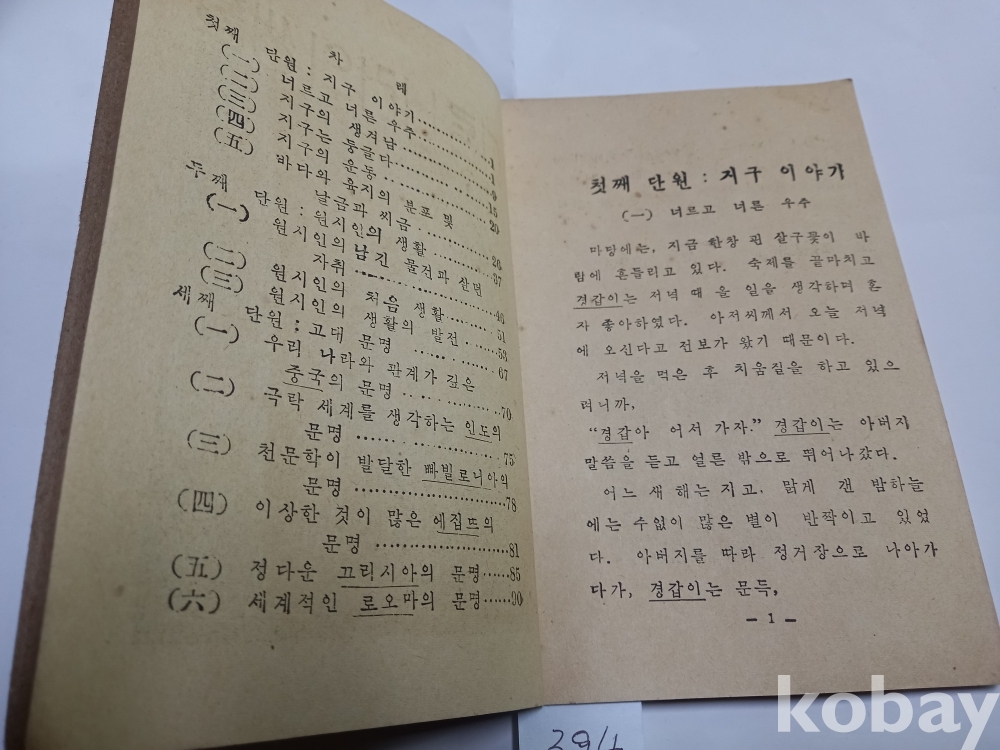 차 례
첫째 단원 : 지구 이야기……………1
(一) 너르고 너른 우주…………1
(二) 지구의 생겨남……………9
(三) 지구는 둥글다……………15
(四) 지구의 운동………………20
(五) 바다와 육지의 분포 및
날금과 씨금………………26
두째 단원 : 원시인의 생활…………37
(一) 원시인의 남긴 물건과 살던
자취…………………………
(二) 원시인의 처음 생활………51
(三) 원시인의 생활의 발전……53
세째 단원 : 고대 문명………………67
(一) 우리 나라와 관계가 깊은
중국의 문명…………………70
(二) 극락 세계를 생각하는 인도의
문명…………………………75
(三) 천문학이 발달한 빠빌로니아의
문명…………………………78
(四) 이상한 것이 많은 에집뜨의
문명…………………………81
(五) 정다운 끄리시아의 문명……85
(六) 세계적인 로오마의 문명……90
첫째 단원 : 지구 이야기
(一) 너르고 너른 우주
마당에는, 지금 한창 핀 살구꽃이 바
람에 흔들리고 있다. 숙제를 끝마치고
경갑이는 저녁 때 올 일을 생각하며 혼
자 좋아하였다. 아저씨께서 오늘 저녁
에 오신다고 전보가 왔기 때문이다.
저녁을 먹은 후 치움질을 하고 있으
려니까,
“경갑아 어서 가자.” 경갑이는 아버지
말씀을 듣고 얼른 밖으로 뛰어나갔다.
어느 새 해는 지고, 맑게 갠 밤하늘
에는 수없이 많은 별이 반짝이고 있었
다. 아버지를 따라 정거장으로 나아가
다가, 경갑이는 문득,
— 1 —
kobay